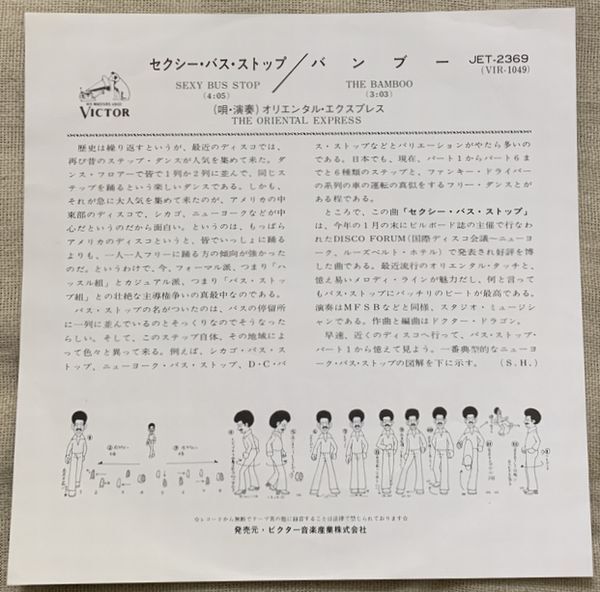 セクシー・バス・ストップ／バンブー
JET-2369
(VIR-1049)
SEXY BUS STOP
THE BAMBOO
(4:05)
(3:03)
HIS MASTER'S VOICE
VICTOR
(唄・演奏)オリエンタル・エクスプレス
THE ORIENTAL EXPRESS
歴史は繰り返すというが、最近のディスコでは、
再び昔のステップ・ダンスが人気を集めて来た。ダ
ンス・フロアーで皆で1列か2列に並んで、同じス
テップを踊るという楽しいダンスである。しかも、
それが急に大人気を集めて来たのが、アメリカの中
東部のディスコで、シカゴ、ニューヨークなどが中
心だというのだから面白い。というのは、もっぱら
アメリカのディスコというと、皆でいっしょに踊る
よりも、一人一人フリーに踊る方の傾向が強かった
のだ。というわけで、今、フォーマル派、つまり「ハ
ッスル組」とカジュアル派、つまり「バス・ストッ
プ組」との壮絶な主導権争いの真最中なのである。
バス・ストップの名がついたのは、バスの停留所
に一列に並んでいるのとそっくりなのでそうなった
らしい。そして、このステップ自体、その地域によ
って色々と異って来る。例えば、シカゴ・バス・ス
トップ、ニューヨーク・バス・ストップ、D・C・バ
ス・ストップなどとバリエーションがやたら多いの
である。日本でも、現在、パート1からパート6ま
でと6種類のステップと、ファンキー・ドライバー
の系列の車の運転の真似をするフリー・ダンスとが
ある程である。
ところで、この曲「セクシー・バス・ストップ」
は、今年の1月の末にビルボード誌の主催で行なわ
れたDISCO FORUM(国際ディスコ会議ーニューヨ
ーク、ルーズベルト・ホテル)で発表され好評を博
した曲である。最近流行のオリエンタル・タッチと、
憶え易いメロディ・ラインが魅力だし、何と言って
もバス・ストップにバッチリのビートが最高である。
演奏はMFSBなどと同様、スタジオ・ミュージ
シャンである。作曲と編曲はドクター・ドラゴン。
早速、近くのディスコへ行って、バス・ストップ・
パート1から憶えて見よう。一番典型的なニューヨ
ーク・バス・ストップの図解を下に示す。
(S.H.)
☆レコードから無断でテープ其の他に録音することは法律で禁じられております☆
発売元・ビクター音楽産業株式会社